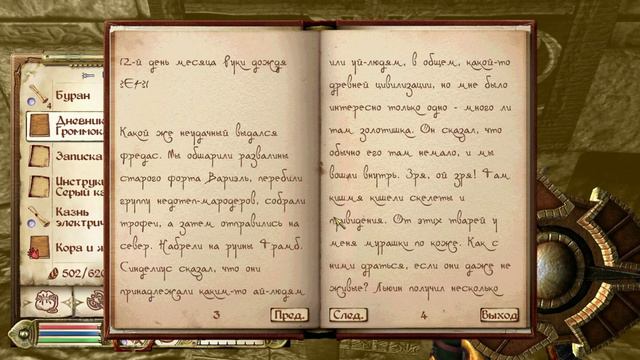 Буран
4
Дневник
Громмока
Записка
Инструк
Серый ка
Казнь
электрич
Кора и ж
502/620
12-й день месяца руки дождя
3Е421
Какой же неудачный выдался
фредас. Мы обшарили развалины
старого форта Вариэль, перебили
группу недотеп-мародеров, собрали
трофеи, а затем отправились на
север. Набрели на руины Фрамб.
Синделиус сказал, что они
принадлежали каким-то ай-людям
3
Пред.
или уй-людям, в общем, какой-то
древней цивилизации, но мне было
интересно только одно - много ли
там золотишка. Он сказал, что
обычно его там немало, и мы
вошли внутрь. Зря, ой зря! Там
кишмя кишели скелеты и
привидения. От этих тварей у
меня мурашки по коже. Как с
ними драться, если они даже не
живые? Льюин получил несколько
След.
4
Выход